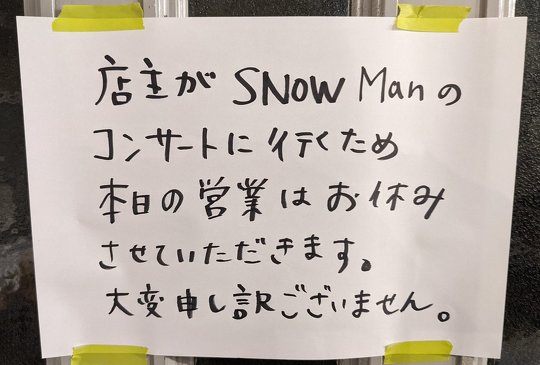 店主が SNOW Manの
コンサートに行くため
本日の営業はお休み
させていただきます。
大変申し訳ございません。